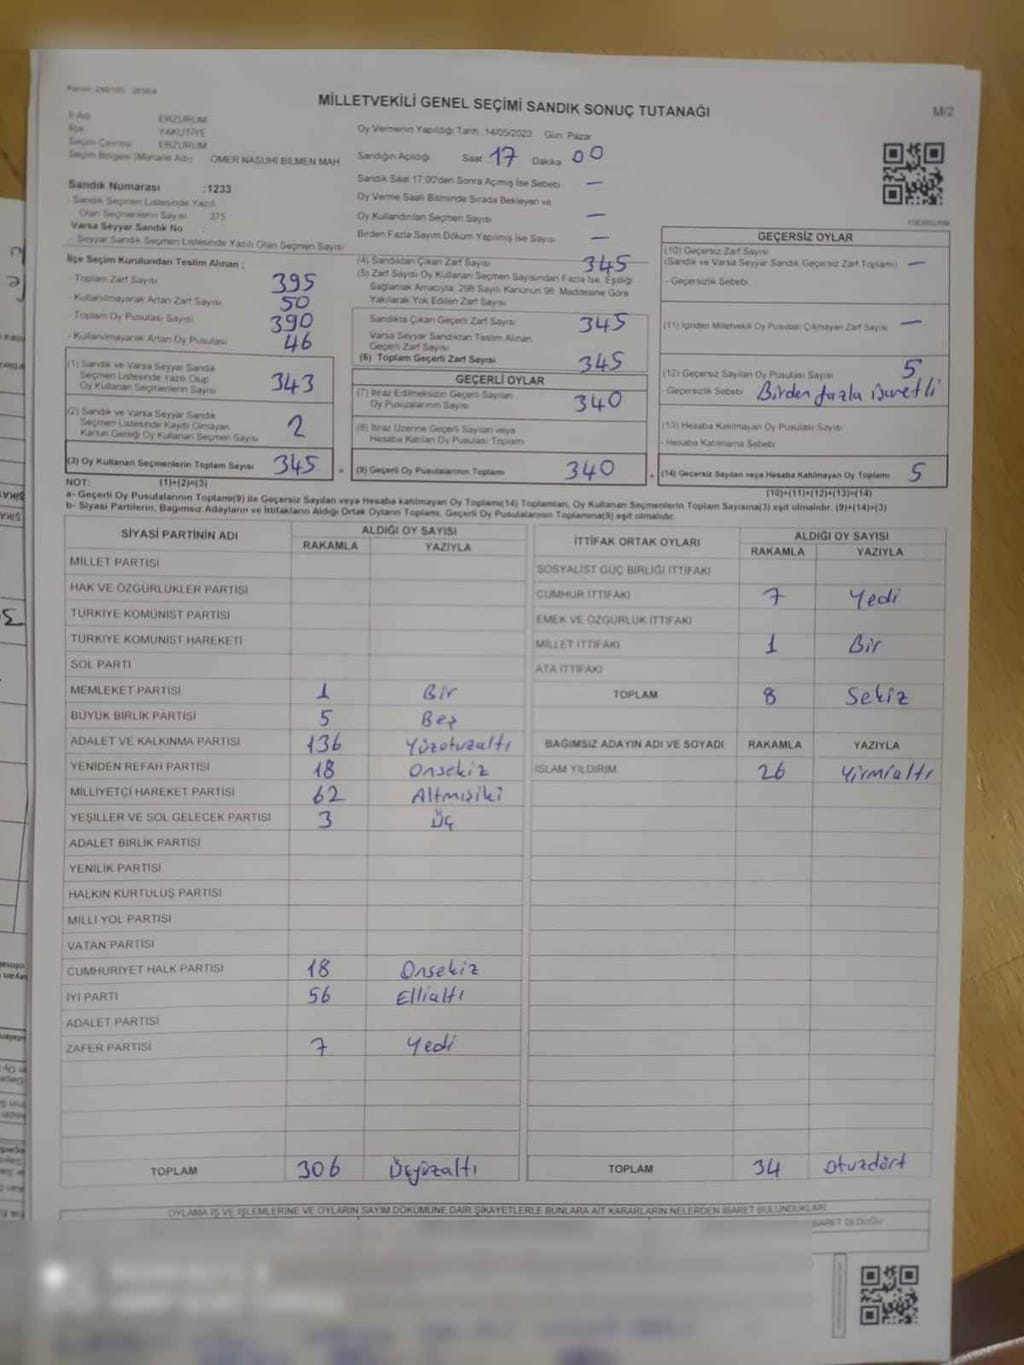 MİLLETVEKİLİ GENEL SEÇİMİ SANDIK SONUÇ TUTANAĞI
M/2
İl Adı ERZURUM
İlçe YAKUTİYE
Seçim Çevresi ERZURUM
Seçim Bölgesi (Mahalle Adı) ÖMER NASUHİ BİLMEN MAH
Sandık Numarası :1233
Sandık Seçmen Listesinde Yazılı
Olan Seçmenlerin Sayısı 375
Varsa Seyyar Sandık No :
- Seyyar Sandık Seçmen Listesinde Yazılı Olan Seçmen Sayısı:
Oy Vermenin Yapıldığı Tarih: 14/05/2023 Gün: Pazar
Sandığın Açıldığı Saat 17 Dakika 00
Sandık Saat 17:00'den Sonra Açılmış İse Sebebi —
Oy Verme Saati Bitiminde Sırada Bekleyen ve
Oy Kullandırılan Seçmen Sayısı —
Birden Fazla Sayım Döküm Yapılmış İse Sayısı —
İlçe Seçim Kurulundan Teslim Alınan ;
- Toplam Zarf Sayısı 395
- Kullanılmayarak Artan Zarf Sayısı 50
- Toplam Oy Pusulası Sayısı 390
- Kullanılmayarak Artan Oy Pusulası 46
(1) Sandık ve Varsa Seyyar Sandık
Seçmen Listesinde Yazılı Olup
Oy Kullanan Seçmenlerin Sayısı 343
(2) Sandık ve Varsa Seyyar Sandık
Seçmen Listesinde Kayıtlı Olmayan
Kanun Gereği Oy Kullanan Seçmen Sayısı 2
(3) Oy Kullanan Seçmenlerin Toplam Sayısı 345
(1)+(2)=(3)
(4) Sandıktan Çıkan Zarf Sayısı 345
(5) Zarf Sayısı Oy Kullanan Seçmen Sayısından Fazla İse, Eşitliği
Sağlamak Amacıyla, 298 Sayılı Kanunun 98. Maddesine Göre
Yakılarak Yok Edilen Zarf Sayısı
Sandıkta Çıkan Geçerli Zarf Sayısı 345
Varsa Seyyar Sandıktan Teslim Alınan
Geçerli Zarf Sayısı
(6) Toplam Geçerli Zarf Sayısı 345
GEÇERLİ OYLAR
(7) İtiraz Edilmeksizin Geçerli Sayılan
Oy Pusulalarının Sayısı 340
(8) İtiraz Üzerine Geçerli Sayılan veya
Hesaba Katılan Oy Pusulası Toplamı
(9) Geçerli Oy Pusulalarının Toplamı 340
GEÇERSİZ OYLAR
(10) Geçersiz Zarf Sayısı
(Sandık ve Varsa Seyyar Sandık Geçersiz Zarf Toplamı) —
- Geçersizlik Sebebi
(11) İçinden Milletvekili Oy Pusulası Çıkmayan Zarf Sayısı —
(12) Geçersiz Sayılan Oy Pusulası Sayısı 5
- Geçersizlik Sebebi Birden fazla işaretli
(13) Hesaba Katılmayan Oy Pusulası Sayısı
- Hesaba Katılmama Sebebi
(14) Geçersiz Sayılan veya Hesaba Katılmayan Oy Toplamı 5
(10)+(11)+(12)+(13)=(14)
NOT:
a- Geçerli Oy Pusulalarının Toplamı(9) ile Geçersiz Sayılan veya Hesaba katılmayan Oy Toplamı(14) Toplamları, Oy Kullanan Seçmenlerin Toplam Sayısına(3) eşit olmalıdır. (9)+(14)=(3)
b- Siyasi Partilerin, Bağımsız Adayların ve İttifakların Aldığı Ortak Oyların Toplamı, Geçerli Oy Pusulalarının Toplamına(9) eşit olmalıdır.
SİYASİ PARTİNİN ADI ALDIĞI OY SAYISI
RAKAMLA YAZIYLA
MİLLET PARTİSİ
HAK VE ÖZGÜRLÜKLER PARTİSİ
TÜRKİYE KOMÜNİST PARTİSİ
TÜRKİYE KOMÜNİST HAREKETİ
SOL PARTİ
MEMLEKET PARTİSİ 1 Bir
BÜYÜK BİRLİK PARTİSİ 5 Beş
ADALET VE KALKINMA PARTİSİ 136 Yüzotuzaltı
YENİDEN REFAH PARTİSİ 18 Onsekiz
MİLLİYETÇİ HAREKET PARTİSİ 62 Altmışiki
YEŞİLLER VE SOL GELECEK PARTİSİ 3 Üç
ADALET BİRLİK PARTİSİ
YENİLİK PARTİSİ
HALKIN KURTULUŞ PARTİSİ
MİLLİ YOL PARTİSİ
VATAN PARTİSİ
CUMHURİYET HALK PARTİSİ 18 Onsekiz
İYİ PARTİ 56 Ellialtı
ADALET PARTİSİ
ZAFER PARTİSİ 7 Yedi
TOPLAM 306 Üçyüzaltı
İTTİFAK ORTAK OYLARI ALDIĞI OY SAYISI
RAKAMLA YAZIYLA
SOSYALİST GÜÇ BİRLİĞİ İTTİFAKI
CUMHUR İTTİFAKI 7 Yedi
EMEK VE ÖZGÜRLÜK İTTİFAKI
MİLLET İTTİFAKI 1 Bir
ATA İTTİFAKI
TOPLAM 8 Sekiz
BAĞIMSIZ ADAYIN ADI VE SOYADI RAKAMLA YAZIYLA
İSLAM YILDIRIM 26 Yirmialtı
TOPLAM 34 Otuzdört
OYLAMA İŞ VE İŞLEMLERİNE VE OYLARIN SAYIM DÖKÜMÜNE DAİR ŞİKAYETLERLE BUNLARA AİT KARARLARIN NELERDEN İBARET BULUNDUKLARI